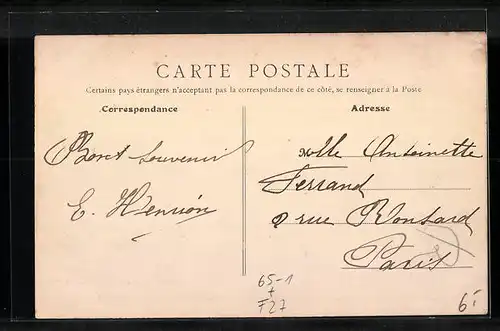 CARTE POSTALE
Certains pays étrangers n'acceptant pas la correspondance de ce côté, se renseigner à la Poste
Correspondance
Adresse
souvenir
E. Henrion
Mlle Antoinette
Ferrand
9 rue Ronsard
Paris
65-1
+
F27
6.-